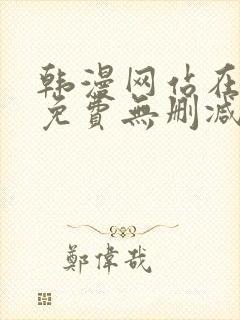 韩漫网站在
免費無删减
鄭偉哉